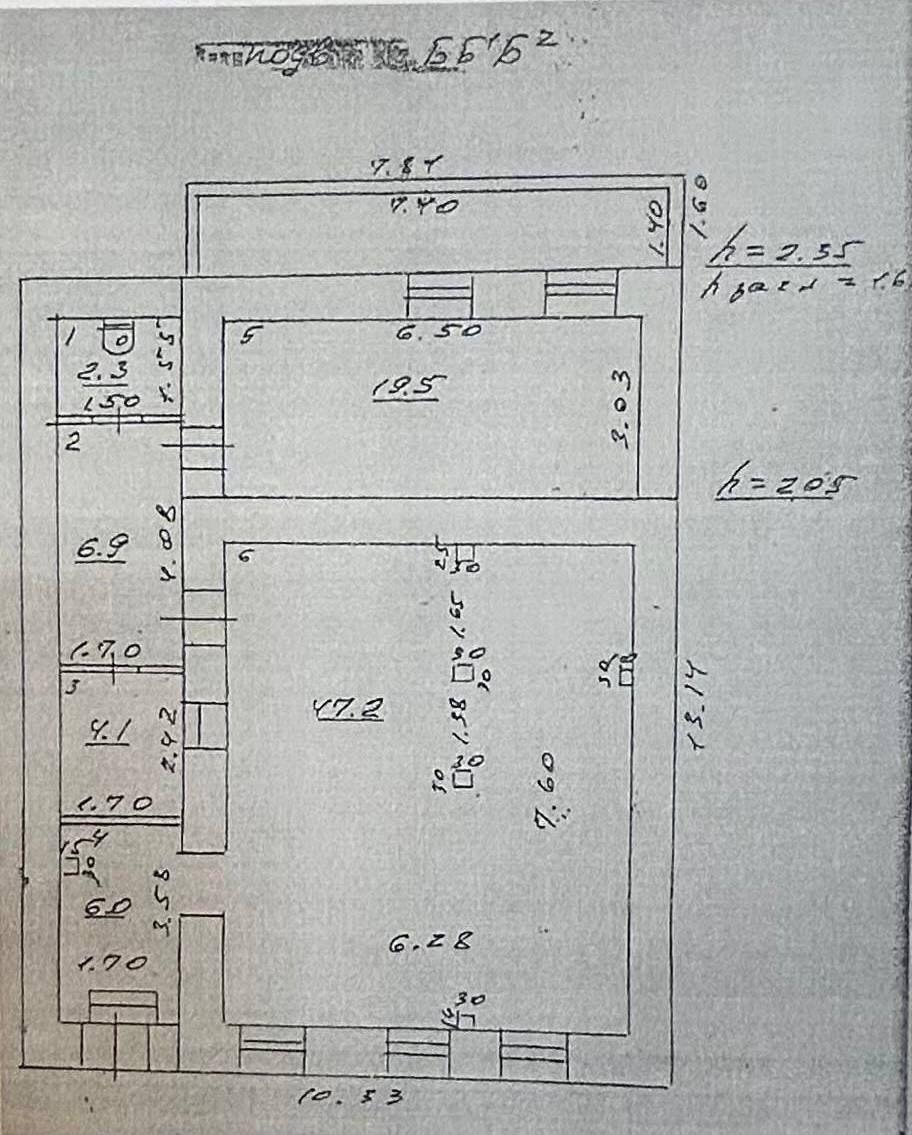 подв ББ'Б²
7.81
7.40
1.40
1.60
h = 2.35
1
2.3
1.50
1.55
5
6.50
19.5
3.03
h = 205
2
6.9
4.08
1.70
6
25
30
1.65
30
30
1.38
30
30
47.2
7.60
13.14
3
4.1
2.42
1.70
4
15
30
6.0
3.58
1.70
6.28
30
10.53